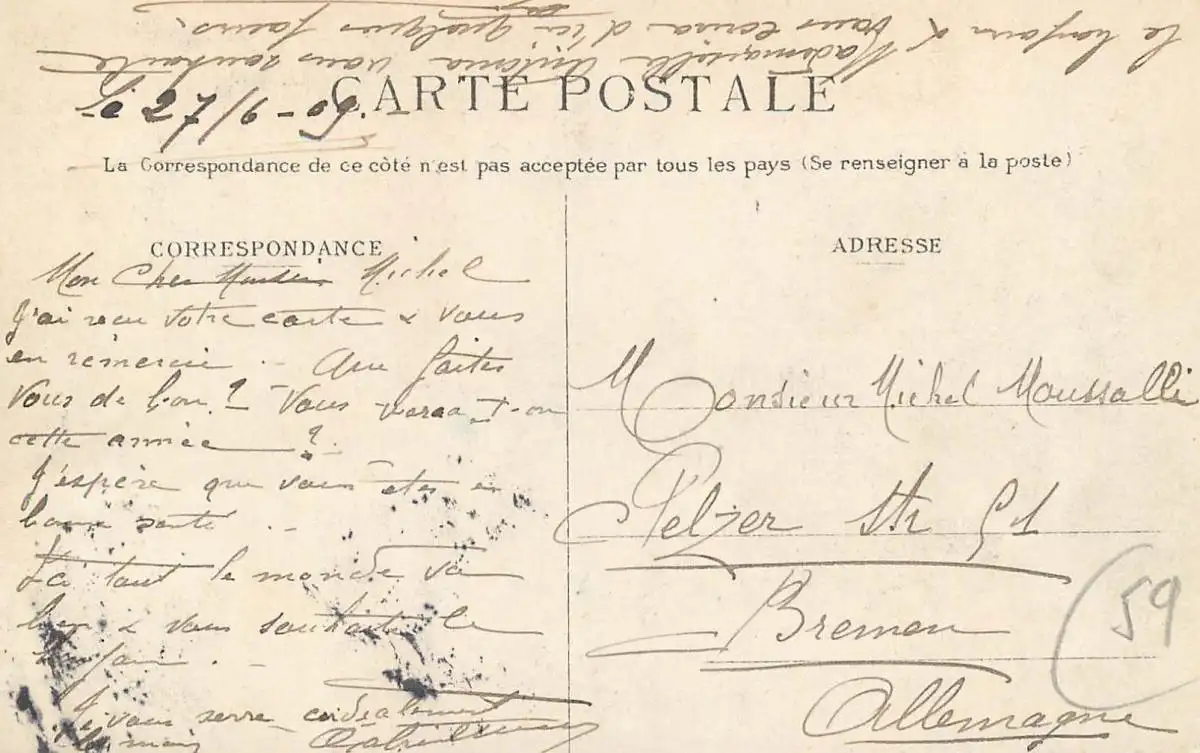 Mademoiselle Antonia vous souhaite
le bonjour & vous écrira d'ici quelques jours.
Le 27/6-09.
CARTE POSTALE
La Correspondance de ce côté n'est pas acceptée par tous les pays (Se renseigner à la poste)
CORRESPONDANCE
Mon Cher Michel
J'ai reçu votre carte & vous
en remercie. - Que faites
vous de bon? - Vous verra-t-on
cette année?
J'espère que vous êtes en
bonne santé. -
Ici tout le monde va
bien & vous souhaite le
bonjour. -
Je vous serre cordialement
la main
ADRESSE
Monsieur Michel Moussalli
Pelzer Str 51
Bremen
Allemagne
59